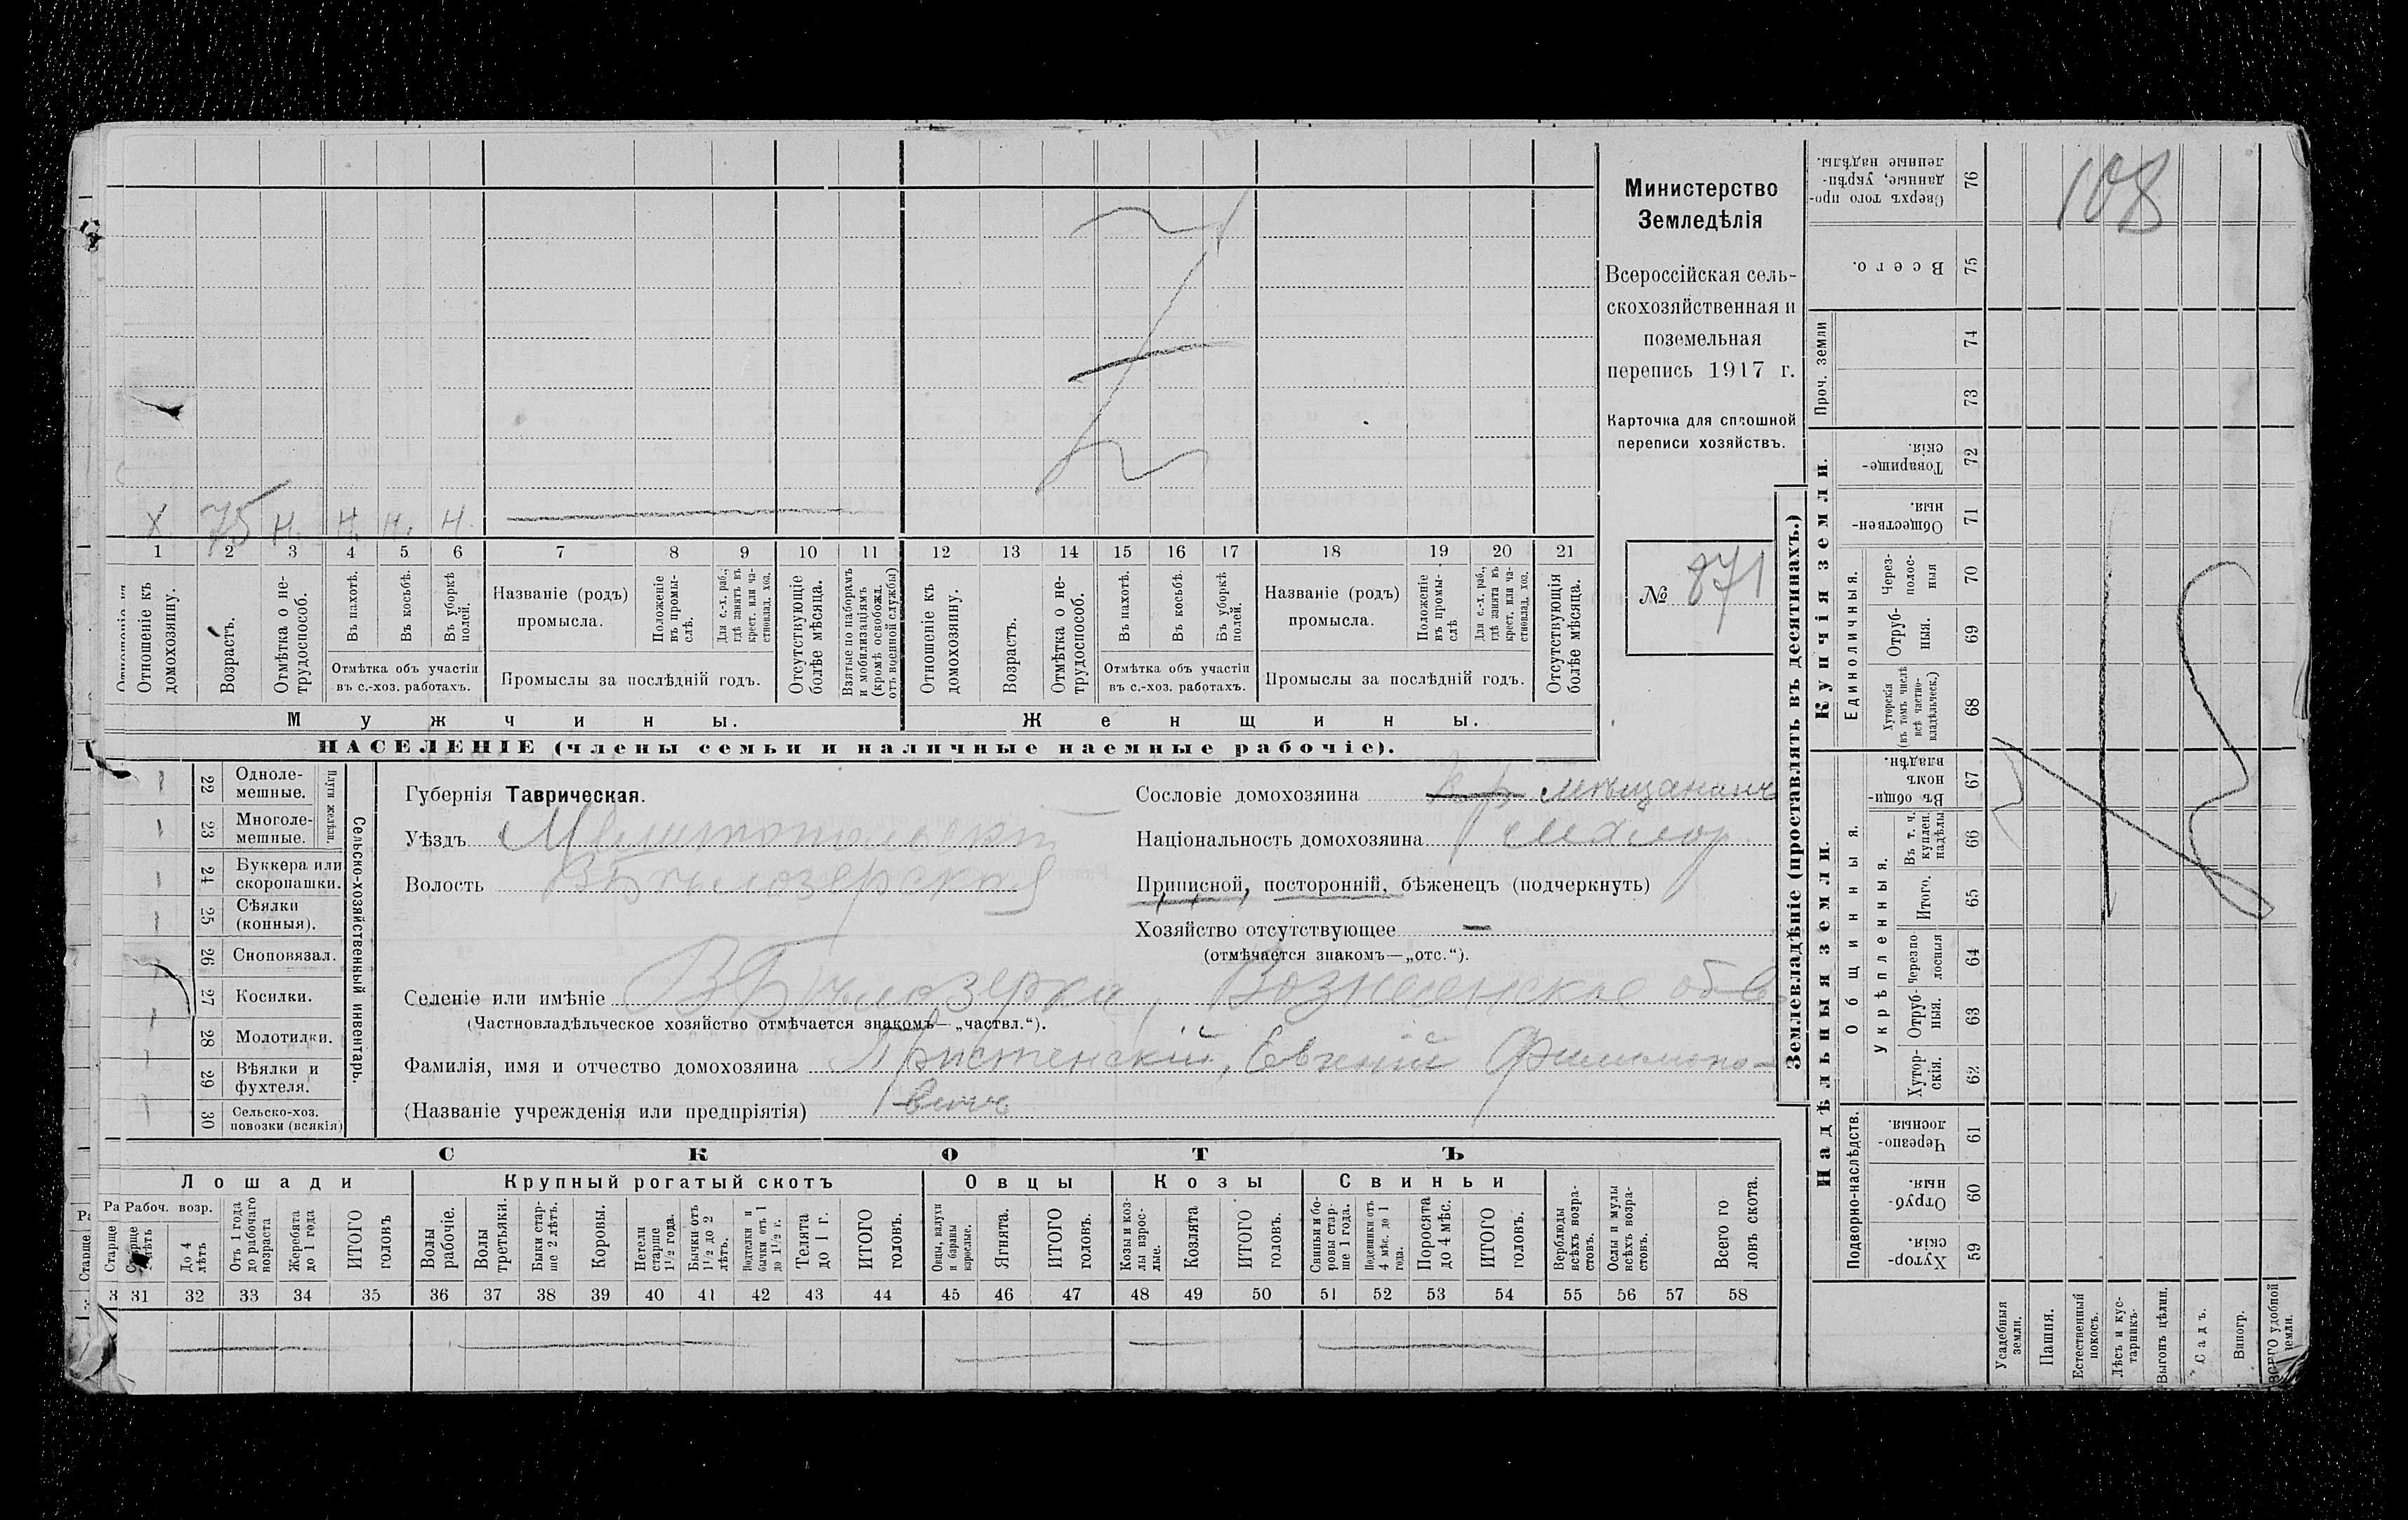 Министерство
Земледѣлія
Всероссійская сель-
скохозяйственная и
поземельная
перепись 1917 г.
Карточка для сплошной
переписи хозяйствъ.
№ 871
108
Х 75 н. н. н. н.
1 2 3 4 5 6 7 8 9 10 11 12 13 14 15 16 17 18 19 20 21
Отношеніе къ
домохозяину.
Возрастъ.
Отмѣтка о не-
трудоспособ.
Въ пахотѣ.
Въ косьбѣ.
Въ уборкѣ
полей.
Отмѣтка объ участіи
въ с.-хоз. работахъ.
Названіе (родъ)
промысла.
Положеніе
въ промы-
слѣ.
Для с.-х. раб.,
гдѣ занятъ въ
крест. или ча-
стновлад. хоз.
Промыслы за послѣдній годъ.
Отсутствующіе
болѣе мѣсяца.
Взятые по наборамъ
и мобилизаціямъ
(кромѣ освобожд.
отъ военной службы)
Отношеніе къ
домохозяину.
Возрастъ.
Отмѣтка о не-
трудоспособ.
Въ пахотѣ.
Въ косьбѣ.
Въ уборкѣ
полей.
Отмѣтка объ участіи
въ с.-хоз. работахъ.
Названіе (родъ)
промысла.
Положеніе
въ промы-
слѣ
Для с.-х. раб.,
гдѣ занята въ
крест. или ча-
стновлад. хоз.
Промыслы за послѣдній годъ.
Отсутствующія
болѣе мѣсяца.
Мужчины.
Женщины.
НАСЕЛЕНІЕ (члены семьи и наличные наемные рабочіе).
22 Одноле-
мешные.
23 Многоле-
мешные.
Плуги желѣзн.
24 Буккера или
скоропашки.
25 Сѣялки
(конныя).
26 Сноповязал.
27 Косилки.
28 Молотилки.
29 Вѣялки и
фухтеля.
30 Сельско-хоз.
повозки (всякія)
Сельско-хозяйственный инвентарь.
Губернія Таврическая.
Уѣздъ Мелитопольскій
Волость В Бѣлозерская
Селеніе или имѣніе В Бѣлозерка, Вознесенское об-во
(Частновладѣльческое хозяйство отмѣчается знакомъ—„частвл.“).
Фамилія, имя и отчество домохозяина Пристенскій, Евгений Филимоно-
вичъ
(Названіе учрежденія или предпріятія)
Сословіе домохозяина кр мѣщанинъ
Національность домохозяина малор.
Приписной, посторонній, бѣженецъ (подчеркнуть)
Хозяйство отсутствующее —
(отмѣчается знакомъ—„отс.“).
СКОТЪ
Лошади
Крупный рогатый скотъ
Овцы
Козы
Свиньи
Рабоч. возр.
Старше
лѣтъ
До 4
лѣтъ
Отъ 1 года
до рабочаго
возраста
Жеребята
до 1 года
ИТОГО
головъ
Волы
рабочіе.
Волы
третьяки.
Быки стар-
ше 2 лѣтъ.
Коровы.
Нетели
старше
1½ года.
Бычки отъ
1½ до 2
лѣтъ.
Подтелки и
бычки отъ 1
до 1½ г.
Телята
до 1 г.
ИТОГО
головъ.
Овцы, валухи
и бараны
взрослые.
Ягнята.
ИТОГО
головъ.
Козы и коз-
лы взрос-
лые.
Козлята
ИТОГО
головъ.
Свиньи и бо-
ровы стар-
ше 1 года.
Подсвинки отъ
4 мѣс. до 1
года.
Поросята
до 4 мѣс.
ИТОГО
головъ.
Верблюды
всѣхъ возра-
стовъ.
Ослы и мулы
всѣхъ возра-
стовъ.
Всего го
ловъ скота.
31 32 33 34 35 36 37 38 39 40 41 42 43 44 45 46 47 48 49 50 51 52 53 54 55 56 57 58
Землевладѣніе (проставлять въ десятинахъ.)
Купчія земли.
Надѣльныя земли.
Сверхъ того про-
данные, укрѣп-
ленные надѣлы.
76
Всего.
75
Проч. земли
74
73
Товарище-
скія.
72
Обществен-
ныя.
71
Единоличныя.
Через-
полос-
ныя
70
Отруб-
ныя.
69
Хуторскія
(въ томъ числѣ
всѣ частно-
владѣльческ.)
68
Общинныя.
Въ общи-
номъ
владѣн.
67
Укрѣпленныя.
Въ т. ч.
куплен.
надѣлы
66
Итого.
65
Черезпо-
лосныя
64
Отруб-
ныя.
63
Хутор-
скія.
62
Подворно-наслѣдств.
Черезпо-
лосныя.
61
Отруб-
ныя.
60
Хутор-
скія.
59
Усадебныя
земли.
Пашня.
Естественный
покосъ.
Лѣсъ и кус-
тарникъ.
Выгонъ цѣлин.
Садъ.
Виногр.
ВСЕГО удобной
земли.